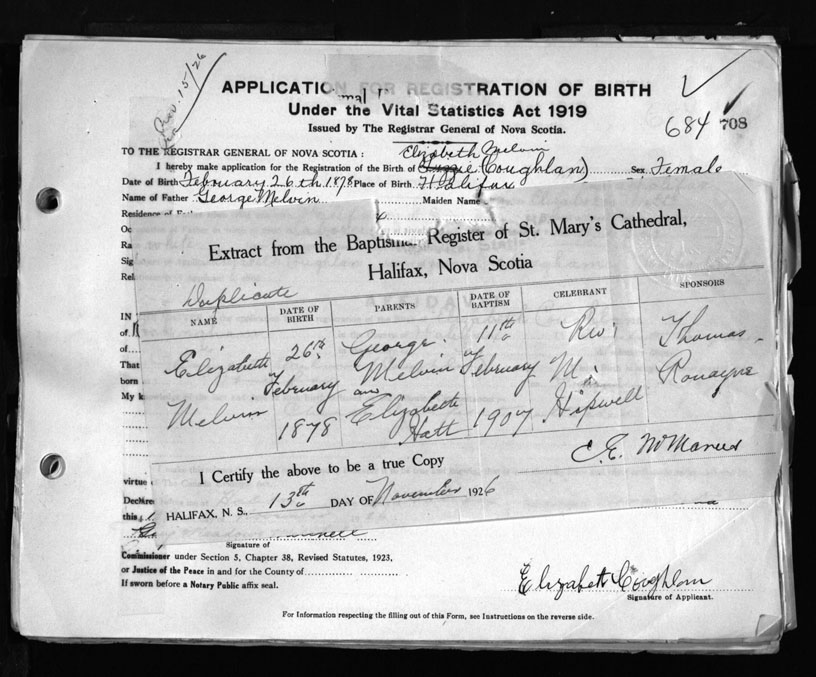 Nov. 15/26
APPLICATION FOR REGISTRATION OF BIRTH
Under the Vital Statistics Act 1919
Issued by The Registrar General of Nova Scotia.
684 708
TO THE REGISTRAR GENERAL OF NOVA SCOTIA: Elizabeth Melvin
I hereby make application for the Registration of the Birth of Lizzie (Coughlan) Sex Female
Date of Birth February 26th 1878 Place of Birth Halifax
Name of Father George Melvin Maiden Name
Residence of
Extract from the Baptismal Register of St. Mary's Cathedral,
Halifax, Nova Scotia
Duplicate
NAME DATE OF BIRTH PARENTS DATE OF BAPTISM CELEBRANT SPONSORS
Elizabeth 26th George 11th Rev. Thomas
February Melvin February M. Ronayne
Melvin and
1878 Elizabeth Hatt 1907 Hipwell
I Certify the above to be a true Copy
C. E. McManus
HALIFAX, N. S., 13th DAY OF November 1926
IN
of
of
That
born
My k
virtue
Declare
this
Signature of
Commissioner under Section 5, Chapter 38, Revised Statutes, 1923,
or Justice of the Peace in and for the County of
If sworn before a Notary Public affix seal.
Elizabeth Coughlan
Signature of Applicant.
For Information respecting the filling out of this Form, see Instructions on the reverse side.